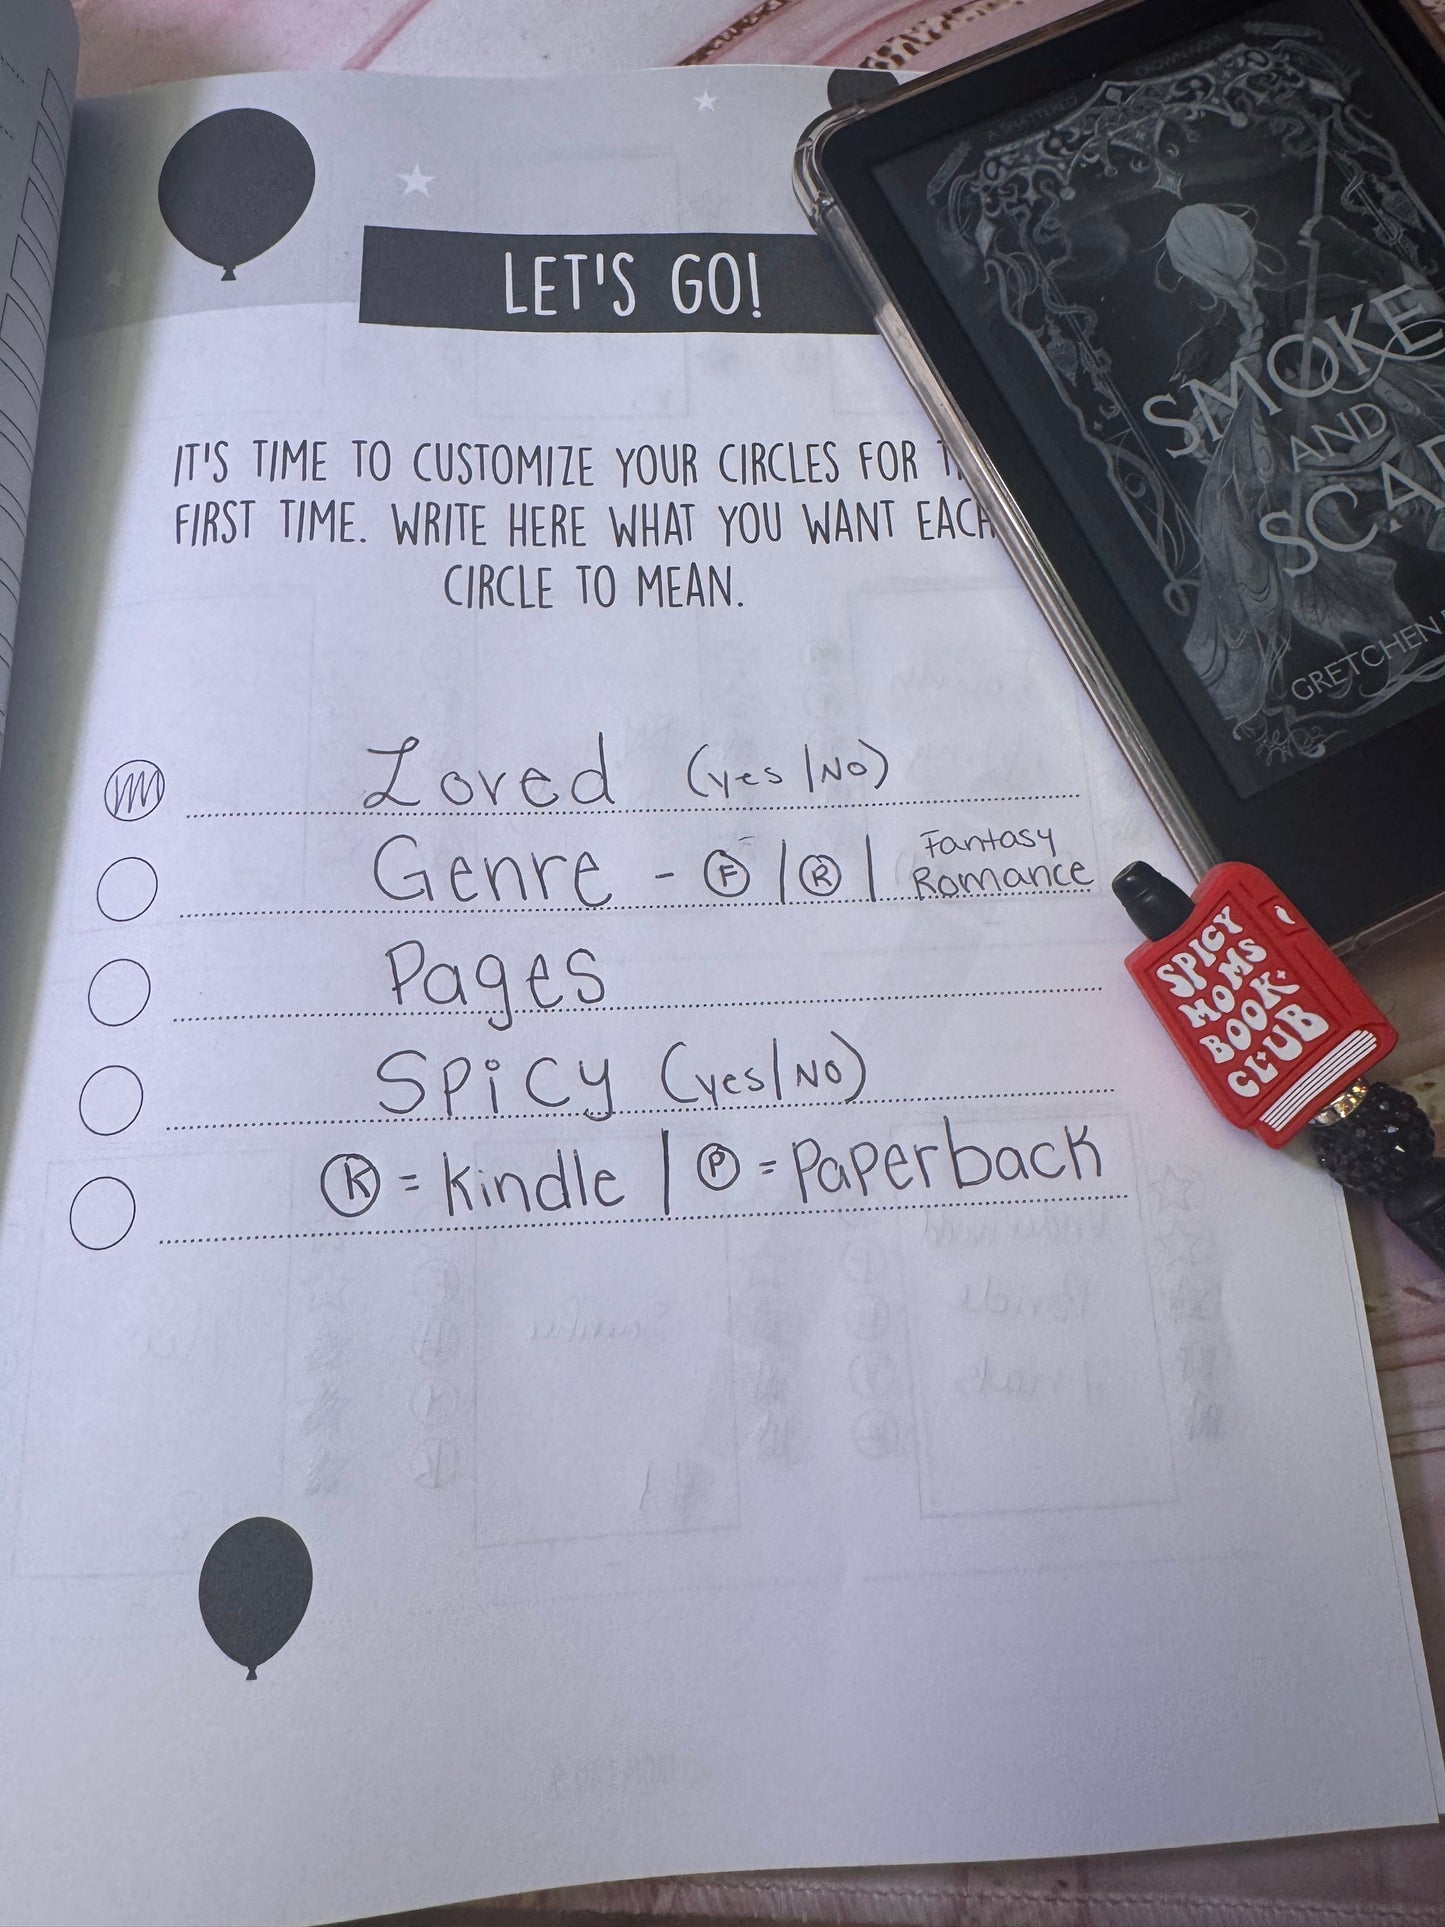 LET'S GO!
IT'S TIME TO CUSTOMIZE YOUR CIRCLES FOR
FIRST TIME. WRITE HERE WHAT YOU WANT EACH
CIRCLE TO MEAN.
Loved (yes/No)
Genre - F / R / Fantasy
Romance
Pages
Spicy (yes/No)
K = Kindle / P = Paperback
SMOKE
AND
GRETCHEN
SPICY
MOMS
BOOK
CLUB